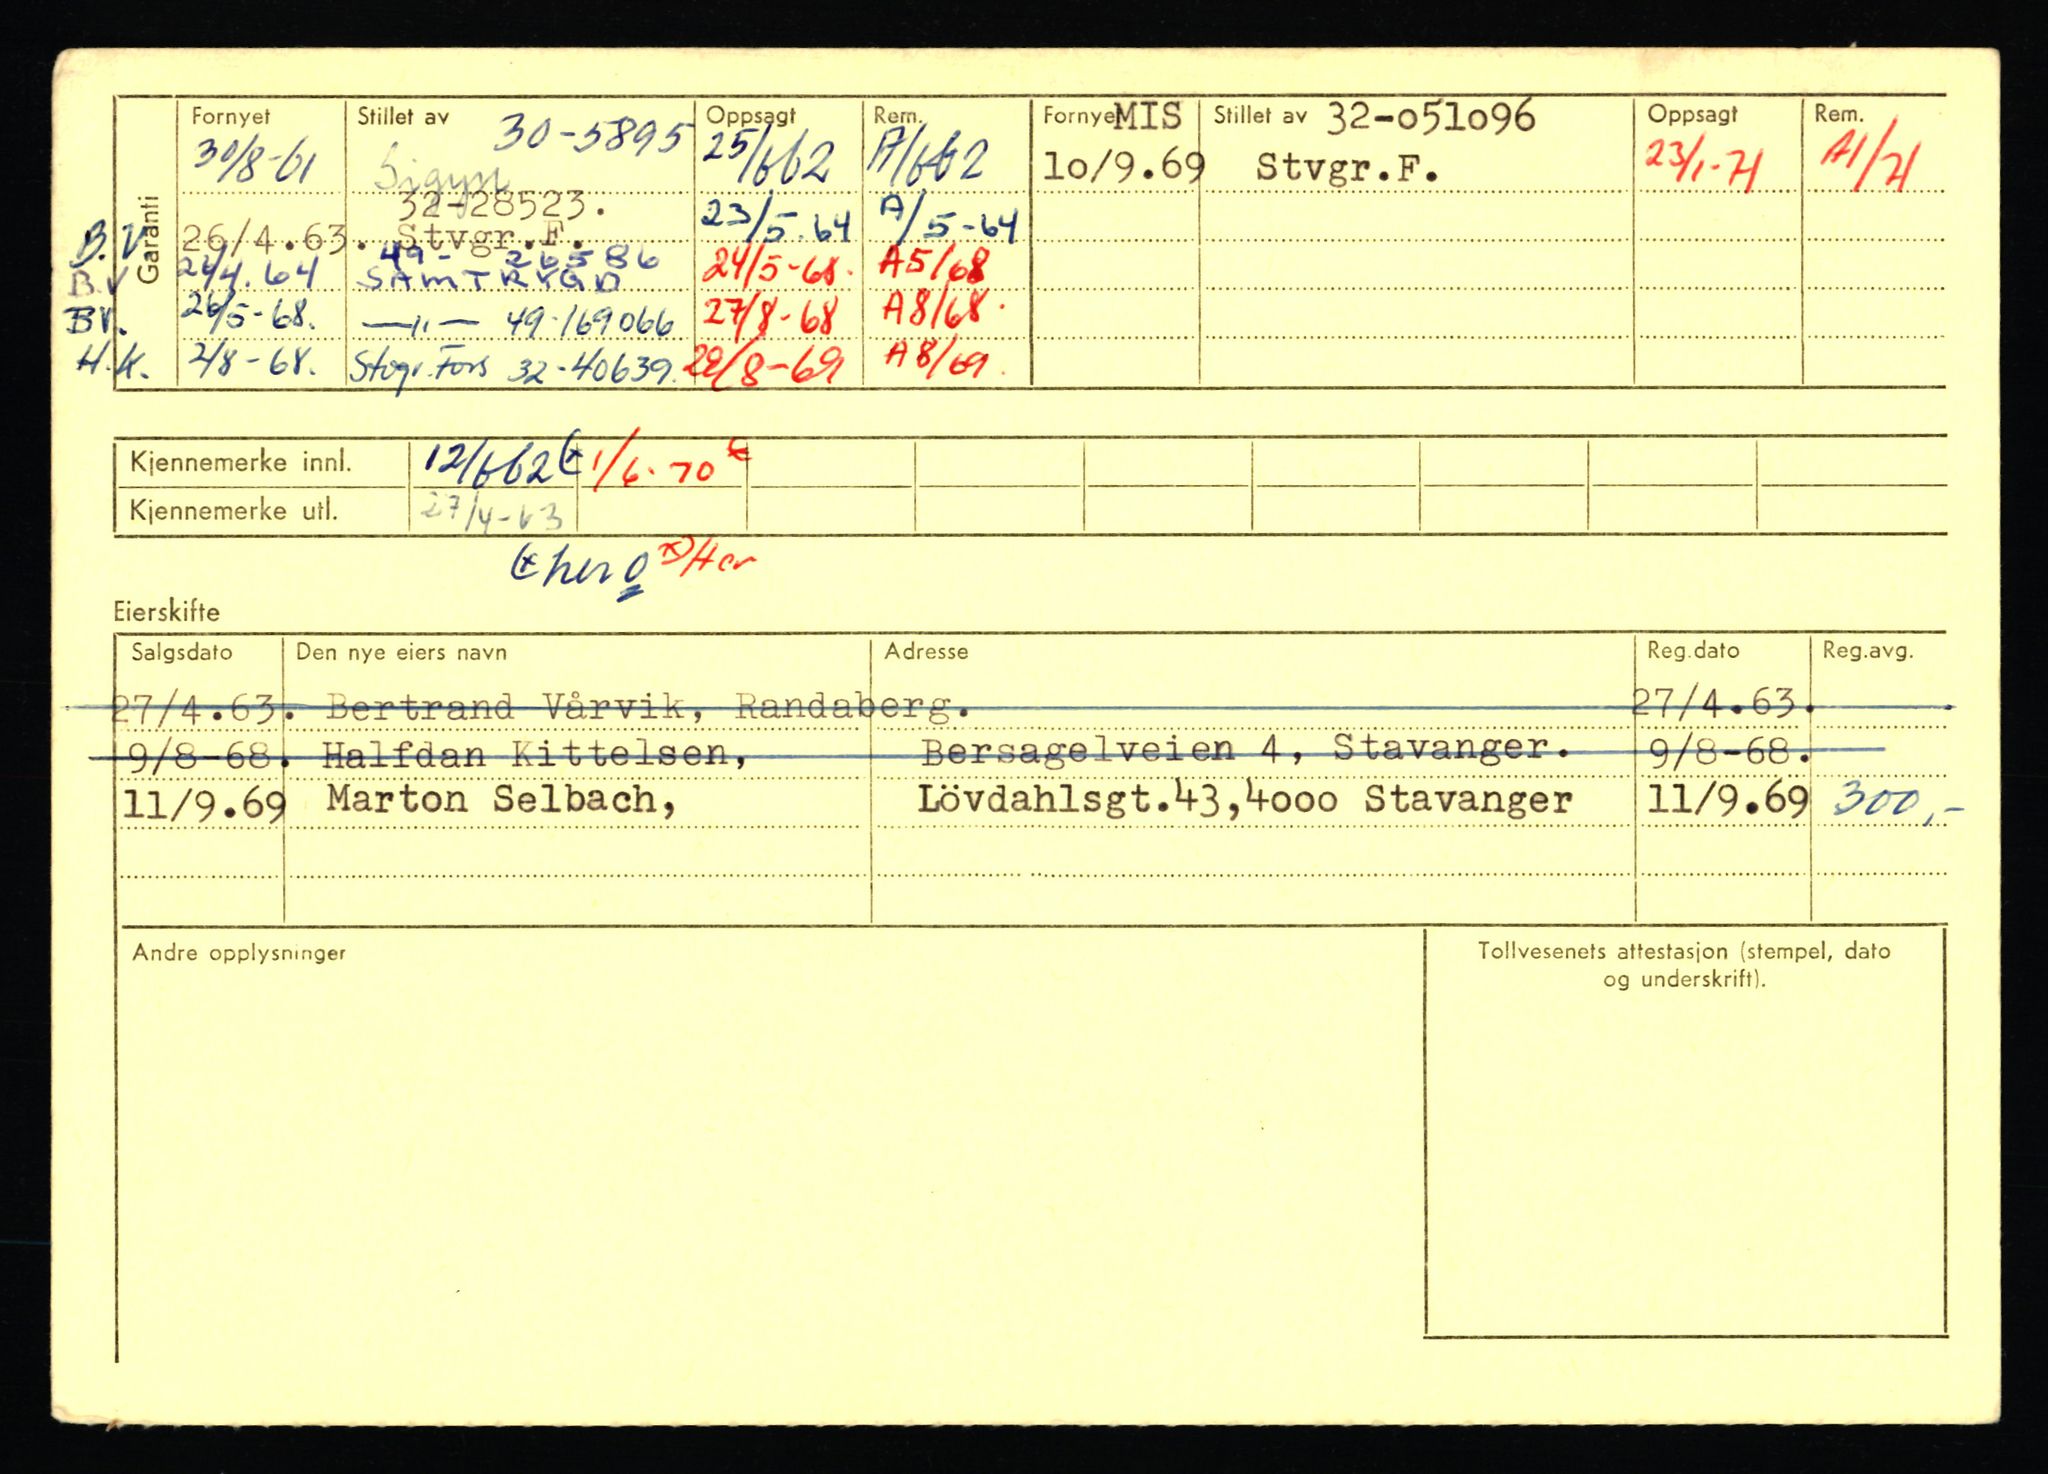 Garanti
Fornyet Stillet av Oppsagt Rem. Fornye MIS Stillet av 32-051096 Oppsagt Rem.
30/8-61 Sigyn 30-5895 25/662 A/662 10/9.69 Stvgr.F. 23/1-71 A1/71
32-28523. 23/5.64 A/5-64
B.V 26/4.63. Stvgr.F.
49- 26586
B.V 24/4.64 SAMTRYGD 24/5-68. A5/68
BV. 26/5-68. —"— 49-169066 27/8-68 A8/68.
H.K. 2/8-68. Stvgr.Fors 32-40639. 22/8-69 A8/69.
Kjennemerke innl. 12/662 (x 1/6.70 x
Kjennemerke utl. 27/4-63
(x her 0 x) Her
Eierskifte
Salgsdato Den nye eiers navn Adresse Reg.dato Reg.avg.
27/4.63. Bertrand Vårvik, Randaberg. 27/4.63.
9/8-68. Halfdan Kittelsen, Bersagelveien 4, Stavanger. 9/8-68.
11/9.69 Marton Selbach, Lövdahlsgt.43,4000 Stavanger 11/9.69 300,-
Andre opplysninger
Tollvesenets attestasjon (stempel, dato
og underskrift).